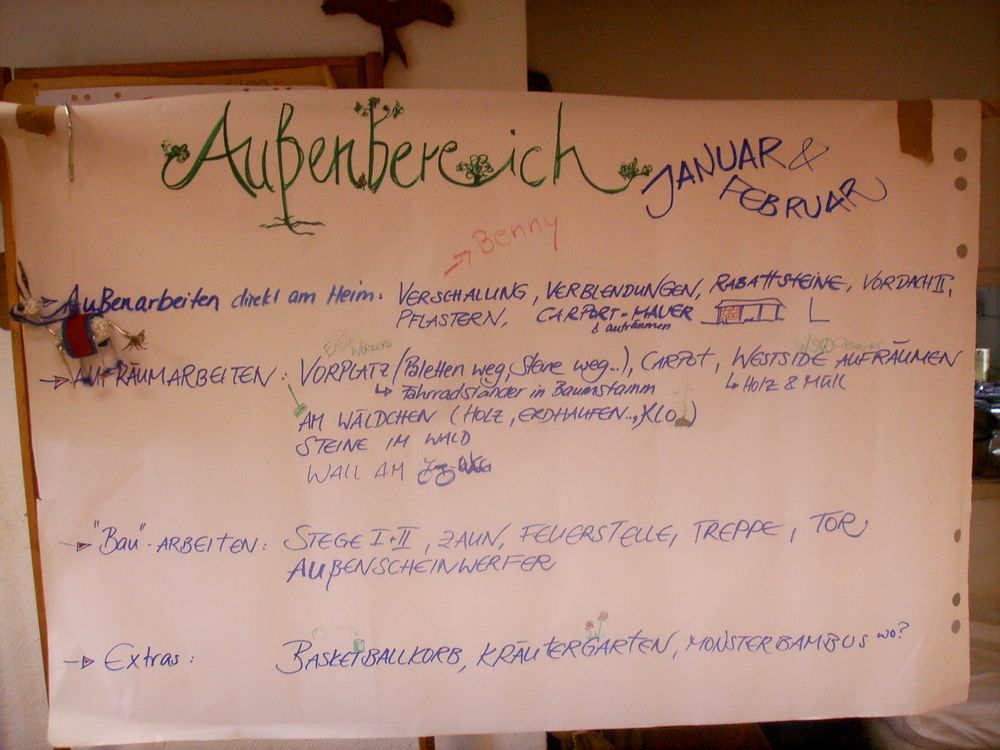 Außenbereich
JANUAR &
FEBRUAR
→ Benny
→ Außenarbeiten direkt am Heim: VERSCHALUNG, VERBLENDUNGEN, RABATTSTEINE, VORDACH II,
PFLASTERN, CARPORT-MAUER
& aufräumen
WORKERS
→ AUFRÄUMARBEITEN: VORPLATZ (Paletten weg, Steine weg...), CARPOT, WESTSIDE AUFRÄUMEN
↳ Fahrradständer in Baumstamm ↳ Holz & Müll
AM WÄLDCHEN (HOLZ, ERDHAUFEN..., KLO)
STEINE IM WALD
WALL AM
→ "Bau"-ARBEITEN: STEGE I+II, ZAUN, FEUERSTELLE, TREPPE, TOR
AUßENSCHEINWERFER
→ Extras: BASKETBALLKORB, KRÄUTERGARTEN, MONSTERBAMBUS wo?